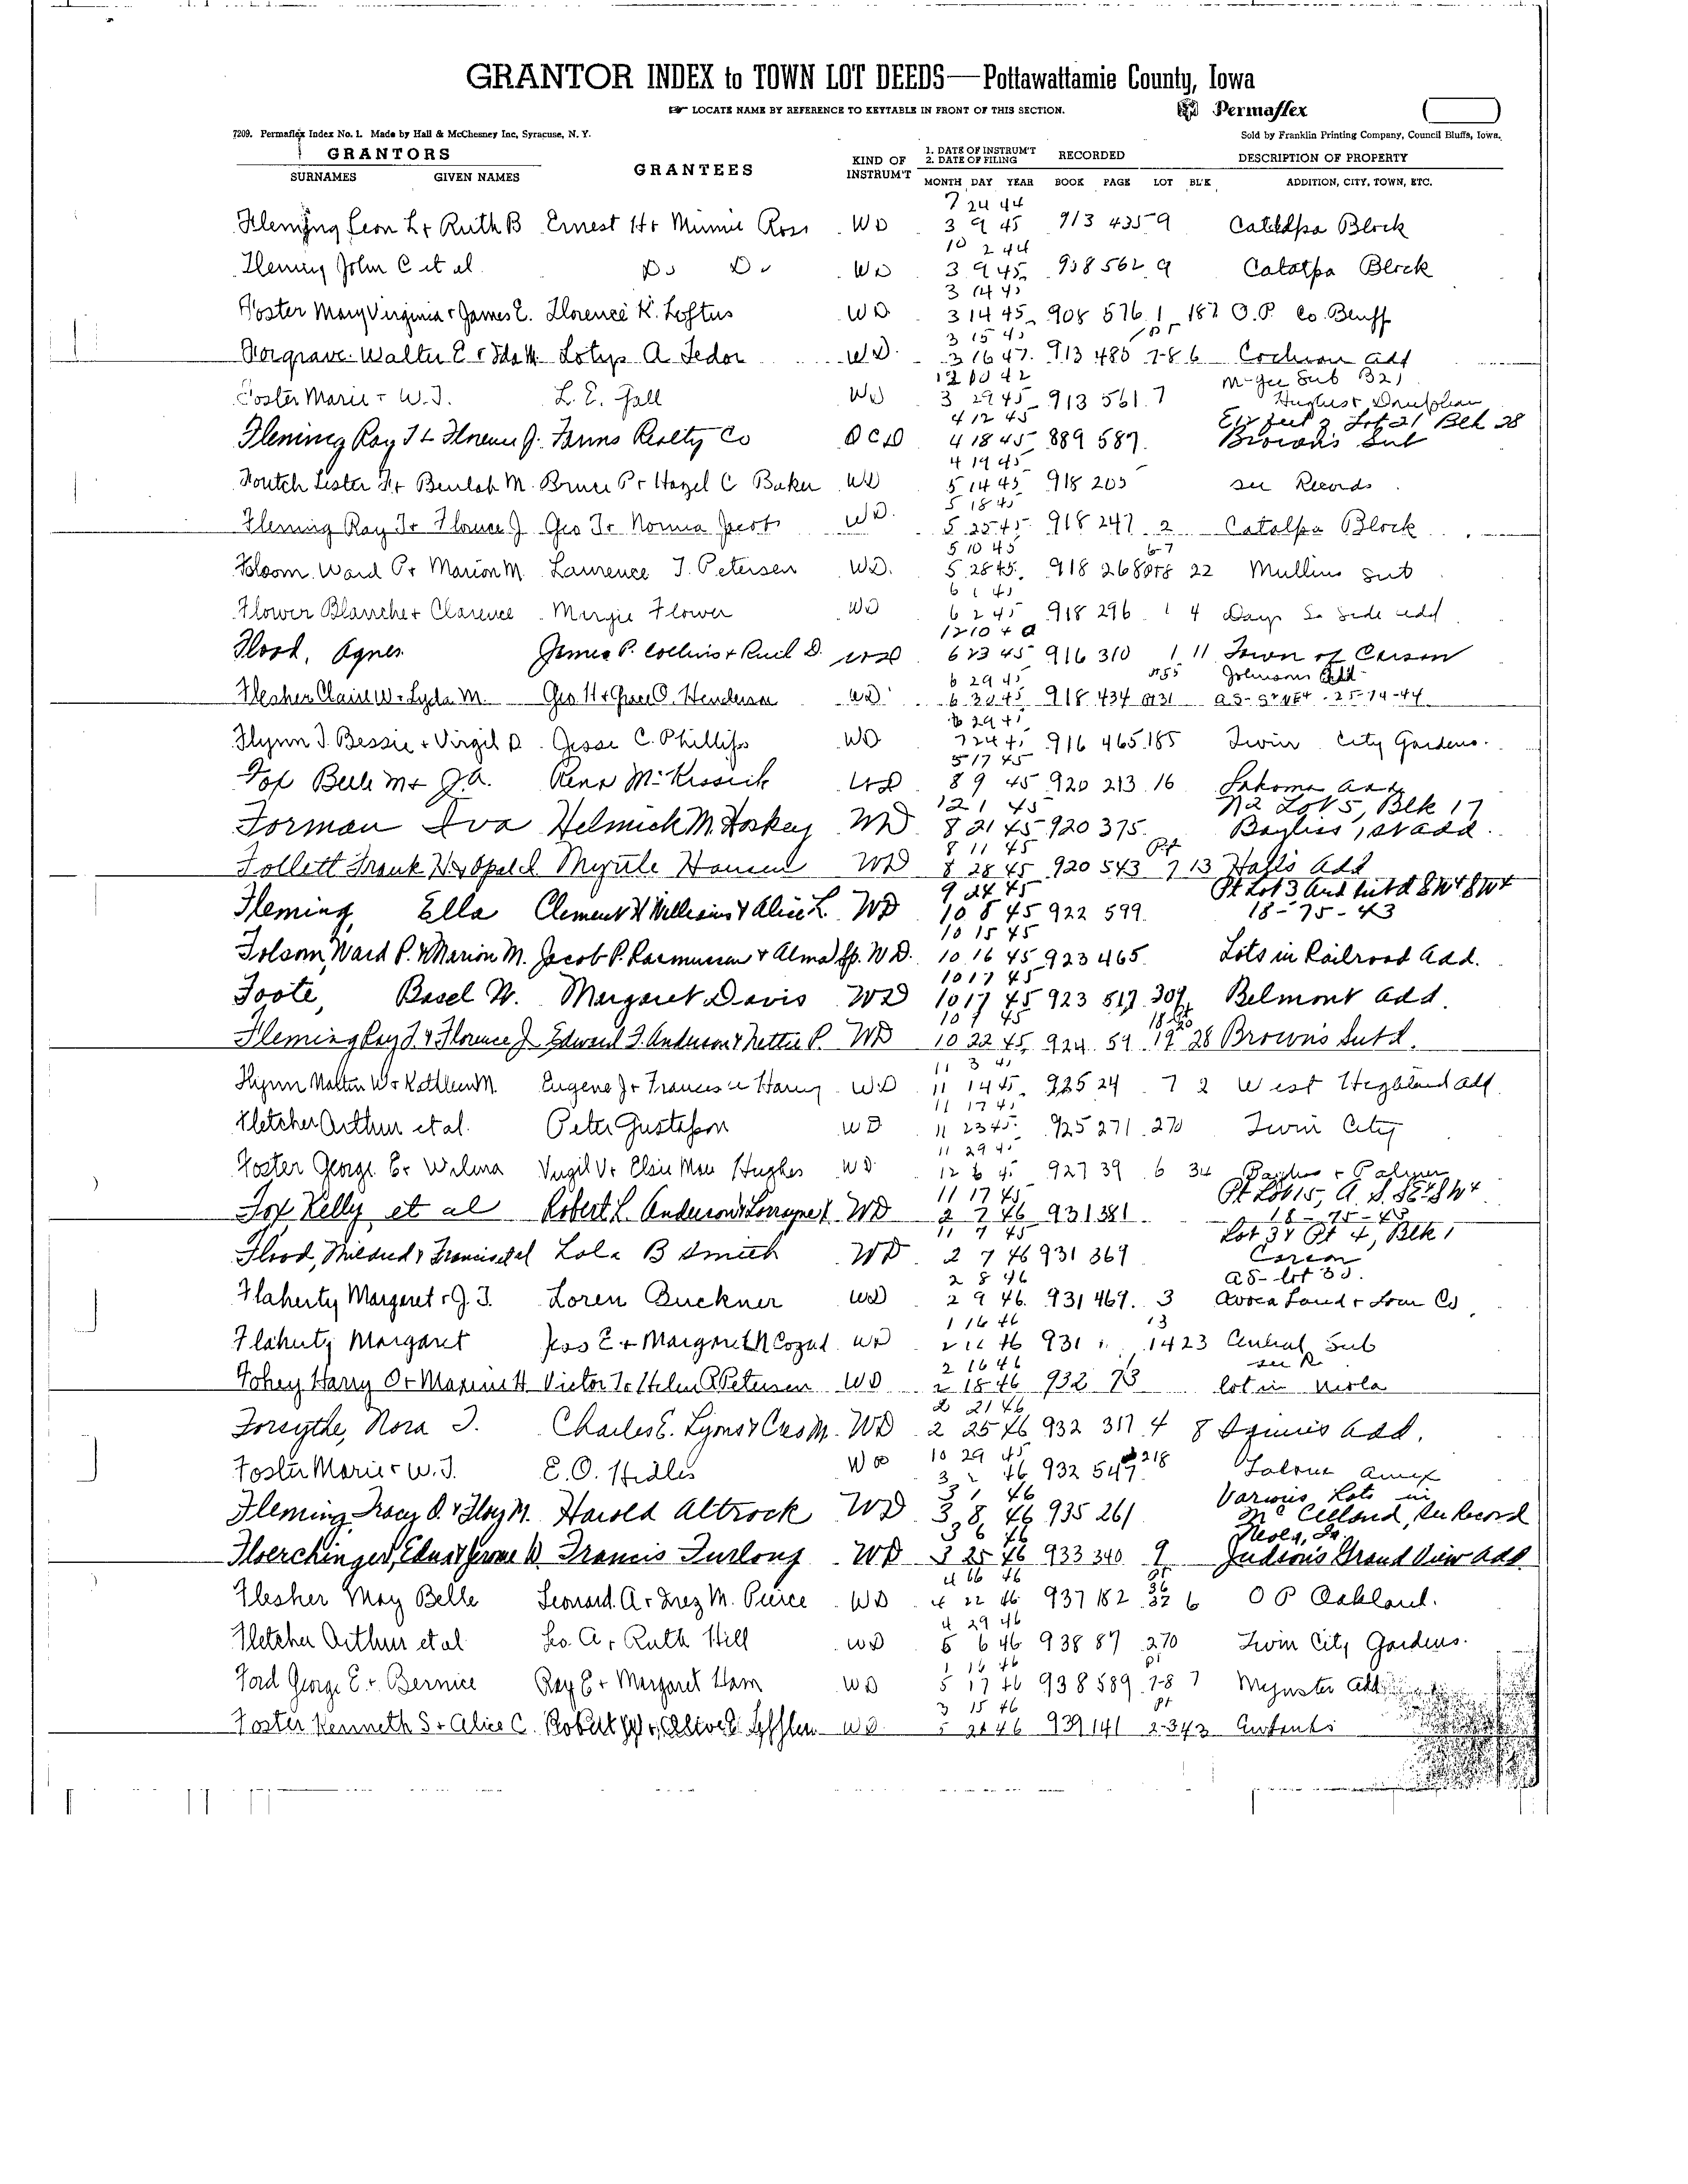 GRANTOR INDEX to TOWN LOT DEEDS—Pottawattamie County, Iowa
LOCATE NAME BY REFERENCE TO KEYTABLE IN FRONT OF THIS SECTION.
Permaflex
7209. Permaflex Index No. 1. Made by Hall & McChesney Inc, Syracuse, N. Y.
Sold by Franklin Printing Company, Council Bluffs, Iowa.
GRANTORS GRANTEES KIND OF INSTRUM'T 1. DATE OF INSTRUM'T 2. DATE OF FILING RECORDED DESCRIPTION OF PROPERTY
SURNAMES GIVEN NAMES MONTH DAY YEAR BOOK PAGE LOT BL'K ADDITION, CITY, TOWN, ETC.
7 24 44
Fleming Leon L + Ruth B Ernest H + Minnie Ross WD 3 9 45 913 435 9 Catalpa Block
10 2 44
Fleming John C et al Do Do WD 3 9 45 908 562 9 Catalpa Block
3 14 45
Foster Mary Virginia + James E. Florence K. Loftus WD 3 14 45 908 576 1 187 O.P. Co. Bluff
3 15 45 pt
Walter E + Ida M. A Fedor WD 3 16 47 913 480 7-8 6 Cochran Add
12 10 42
Foster Marie + W.J. L. E. Gall WD 3 29 45 913 561 7
4 12 45 Lot 21 Blk 28
Fleming Ray J + Florence J. Farms Realty Co QCD 4 18 45 889 587 Brown's Sub
4 19 45
Foutch Lester + Beulah M. Bruce P + Hazel C Baker WD 5 14 45 918 205 see Records
5 18 45
Fleming Ray J + Florence J Geo J + Norma Jacobs WD 5 25 45 918 247 2 Catalpa Block
5 10 45 6-7
Folsom Ward P + Marion M. Laurence J. Petersen WD 5 28 45 918 268 22 Mullins Sub
6 1 45
Flower Blanche + Clarence Margie Flower WD 6 2 45 918 296 1 4 Days So Side Add
12 10 40
Flood, Agnes James P. Collins + WD 6 23 45 916 310 1 11 Town of Carson
6 29 45 Johnsons Add
Flesher Claire W + Lyda M. Geo H + Grace O. Henderson WD 6 30 45 918 434 25-74-44
6 29 45
Flynn J. Bessie + Virgil D. Jesse C. Phillips WD 7 24 45 916 465 185 Twin City Gardens.
5 17 45
Fox Belle M + J.A. Rena McKissick WD 8 9 45 920 213 16 Lakoma Add
12 1 45 N2 Lot 5, Blk 17
Forman Iva Helmick M. Hoskey WD 8 21 45 920 375 Bayliss 1st add.
8 11 45 Pt
Follett Frank H + Opal L Myrtle Hansen WD 8 28 45 920 543 7 13 Halls Add
9 24 45 Pt Lot 3 Aud Subd SW4 SW4
Fleming, Ella Clement H Williams & Alice L. WD 10 8 45 922 599 18-75-43
10 15 45
Folsom, Ward P. & Marion M. Jacob P. Rasmussen & Alma WD. 10 16 45 923 465 Lots in Railroad Add.
10 17 45
Foote, Basel W. Margaret Davis WD 10 17 45 923 517 307 Belmont Add.
10 9 45
Fleming Ray J. & Florence J Edward F. Anderson & Nettie P. WD 10 22 45 924 59 19 28 Brown's Subd.
11 3 45
Flynn Walter W + Kathleen M. Eugene J + Frances Harry WD 11 14 45 925 24 7 2 West Highland Add.
11 17 45
Fletcher Arthur et al. Peter Gustafson WD 11 23 45 925 271 270 Twin City
11 29 45
Foster George E + Wilma Virgil V + Elsie Mae Hughes WD 12 6 45 927 39 6 34 Bayliss + Palmer
11 17 45 Pt Lot 15, A. S. SE4 SW4
Fox Kelly et al Robert L. Anderson & Lorrayne WD 2 7 46 931 381 18-75-43
11 7 45 Lot 3 & Pt 4, Blk 1
Flood, Mildred & Francis et al Lola B Smith WD 2 7 46 931 369 Carson
2 8 46 AS-lot 30.
Flaherty Margaret + J. J. Loren Buckner WD 2 9 46 931 469 3 Avoca Land + Loan Co
1 16 46 13
Flaherty Margaret Jess E + Margaret N Cozad WD 2 11 46 931 " 14 23 Central Sub
2 16 46 see R
Fohey Harry O + Maxine H Victor J + Helen R Petersen WD 2 18 46 932 73 lot in Neola
2 21 46
Forsythe, Nora J. Charles E. Lyons & WD 2 25 46 932 317 4 8 Squires Add.
10 29 45
Foster Marie + W.J. E. O. Hidles WD 3 2 46 932 547 218
3 1 46 Various Lots in
Fleming Tracy D. & Floy M. Harold Altrock WD 3 8 46 935 261 McClelland, See Record
3 6 46 Neola, Ia.
Floerchinger, Edna & Jerome W Francis Furlong WD 3 25 46 933 340 9 Judson's Grand View Add.
4 16 46 pt
Flesher May Belle Leonard A + Inez M. Pierce WD 4 22 46 937 182 6 O P Oakland.
4 29 46
Fletcher Arthur et al Leo. A + Ruth Hill WD 5 6 46 938 87 270 Twin City Gardens.
1 16 46 pt
Ford George E + Bernice Ray E + Margaret Ham WD 5 17 46 938 589 7-8 7 Mynster Add
3 15 46 pt
Foster Kenneth S + Alice C. Robert W + Olive E Leffler WD 5 21 46 939 141 2-3 43